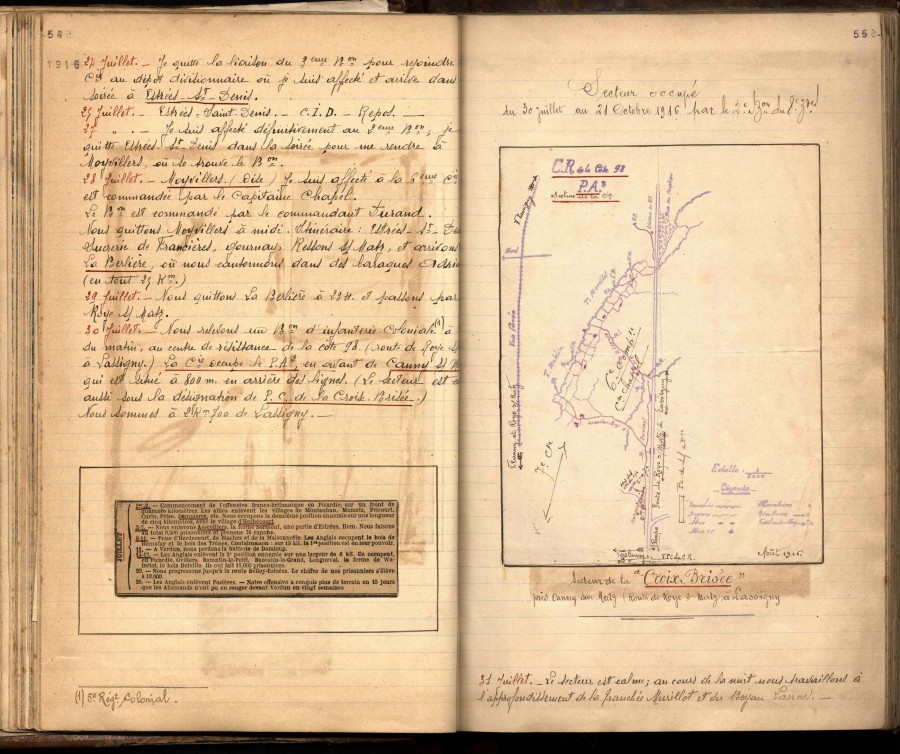 1916
24 Juillet. – Je quitte la liaison du 3eme Bon pour rejoindre
Cie au dépot divisionnaire où je suis affecté et arrive dans
soirée à Estrées-St-Denis.
25 Juillet. – Estrées-Saint-Denis. – C.I.D. – Repos. –
27 " . – Je suis affecté définitivement au 2eme Bon; je
quitte Estrées-St-Denis dans la soirée pour me rendre à
Moyvillers, où se trouve le Bon.
28 Juillet. – Moyvillers. (Oise) Je suis affecté à la 6eme Cie
est commandée par le Capitaine Chapel.
Le Bon est commandé par le commandant Durand.
Nous quittons Moyvillers à midi. Itinéraire : Estrées-St-De
Sucrerie de Francières, Gournay, Ressons s/ Matz, et arrivons
La Berlière, où nous cantonnons dans des baraques Adria
(en tout 25 Km.)
29 Juillet. – Nous quittons La Berlière à 22H. et passons par
Roye s/ Matz.
30 Juillet. – Nous relevons un Bon d'infanterie Coloniale (1) à
du matin, au centre de résistance de la côte 98. (route de Roye s/
à Lassigny.) La Cie occupe le P.A2, en avant de Canny s/ M
qui est situé à 800 m. en arrière des lignes. (Le secteur est
aussi sous la désignation de P.C. de la Croix-Brisée.)
Nous sommes à 2Km 700 de Lassigny. –
JUILLET
– Commencement de l'offensive franco-britannique en Picardie, sur un front de
quarante kilomètres. Les alliés enlèvent les villages de Montauban, Mametz, Fricourt,
Curlu, Frise,
de cinq kilomètres, avec le village d'Herbécourt.
– Nous enlevons Assevillers, une partie d'Estrées, Nous faisons
– Prise d'Hardécourt, de Biaches et de la Maisonnette. Les Anglais occupent le bois de
– A Verdun, nous perdons la batterie de Damloup.
– Les Anglais enlèvent la 2e position ennemie sur une largeur de 6 kil. Ils occupent,
en Picardie, Ovillers, Bazentin-le-Grand, Longueval, la ferme de
le bois Delville. Ils ont fait 11,000 prisonniers.
20. – Nous progressons jusqu'à la route Belloy-Estrées. Le chiffre de nos prisonniers s'élève
à 12,000.
26. – Les Anglais enlèvent Pozières. – Notre offensive a conquis plus de terrain en 15 jours
que les Allemands n'ont pu en ronger devant Verdun en vingt semaines
(1) 5e Régt Colonial.
Secteur occupé
du 30 juillet au 21 Octobre 1916 par le 2e Bon du
C.R. de la Côte 98
P.A2
6e Comp.ie
7e Cie
Route de Roye s/ Matz à Lassigny
Echelle :
Légende
Août 1916.
Secteur de la "Croix Brisée"
près Canny sur Matz (Route de Roye s/ Matz à Lassigny
31 Juillet. – Le secteur est calme; au cours de la nuit nous travaillons à
l'approfondissement de la tranchée Murillot et du Boyau Vanne. –